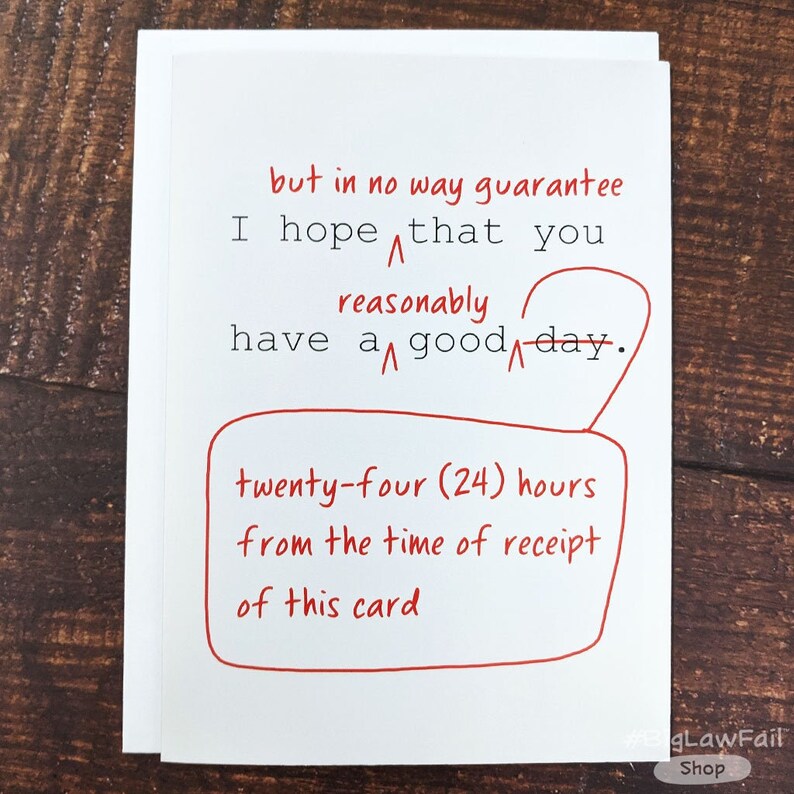 but in no way guarantee
I hope that you
reasonably
have a good day.
twenty-four (24) hours
from the time of receipt
of this card
#BigLawFail
Shop